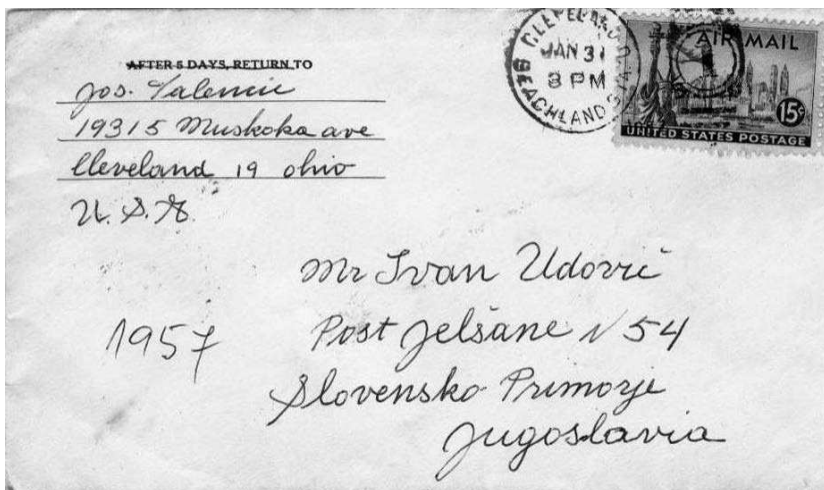 AFTER 5 DAYS, RETURN TO
Jos. Valencic
19315 Muskoka ave
Cleveland 19 ohio
U.S.A.
CLEVELAND, O.
JAN 31
3 PM
BEACHLAND STA.
AIR MAIL
15¢
UNITED STATES POSTAGE
Mr Ivan Udovič
Post Jelšane N 54
Slovensko Primorje
Jugoslavia
1957